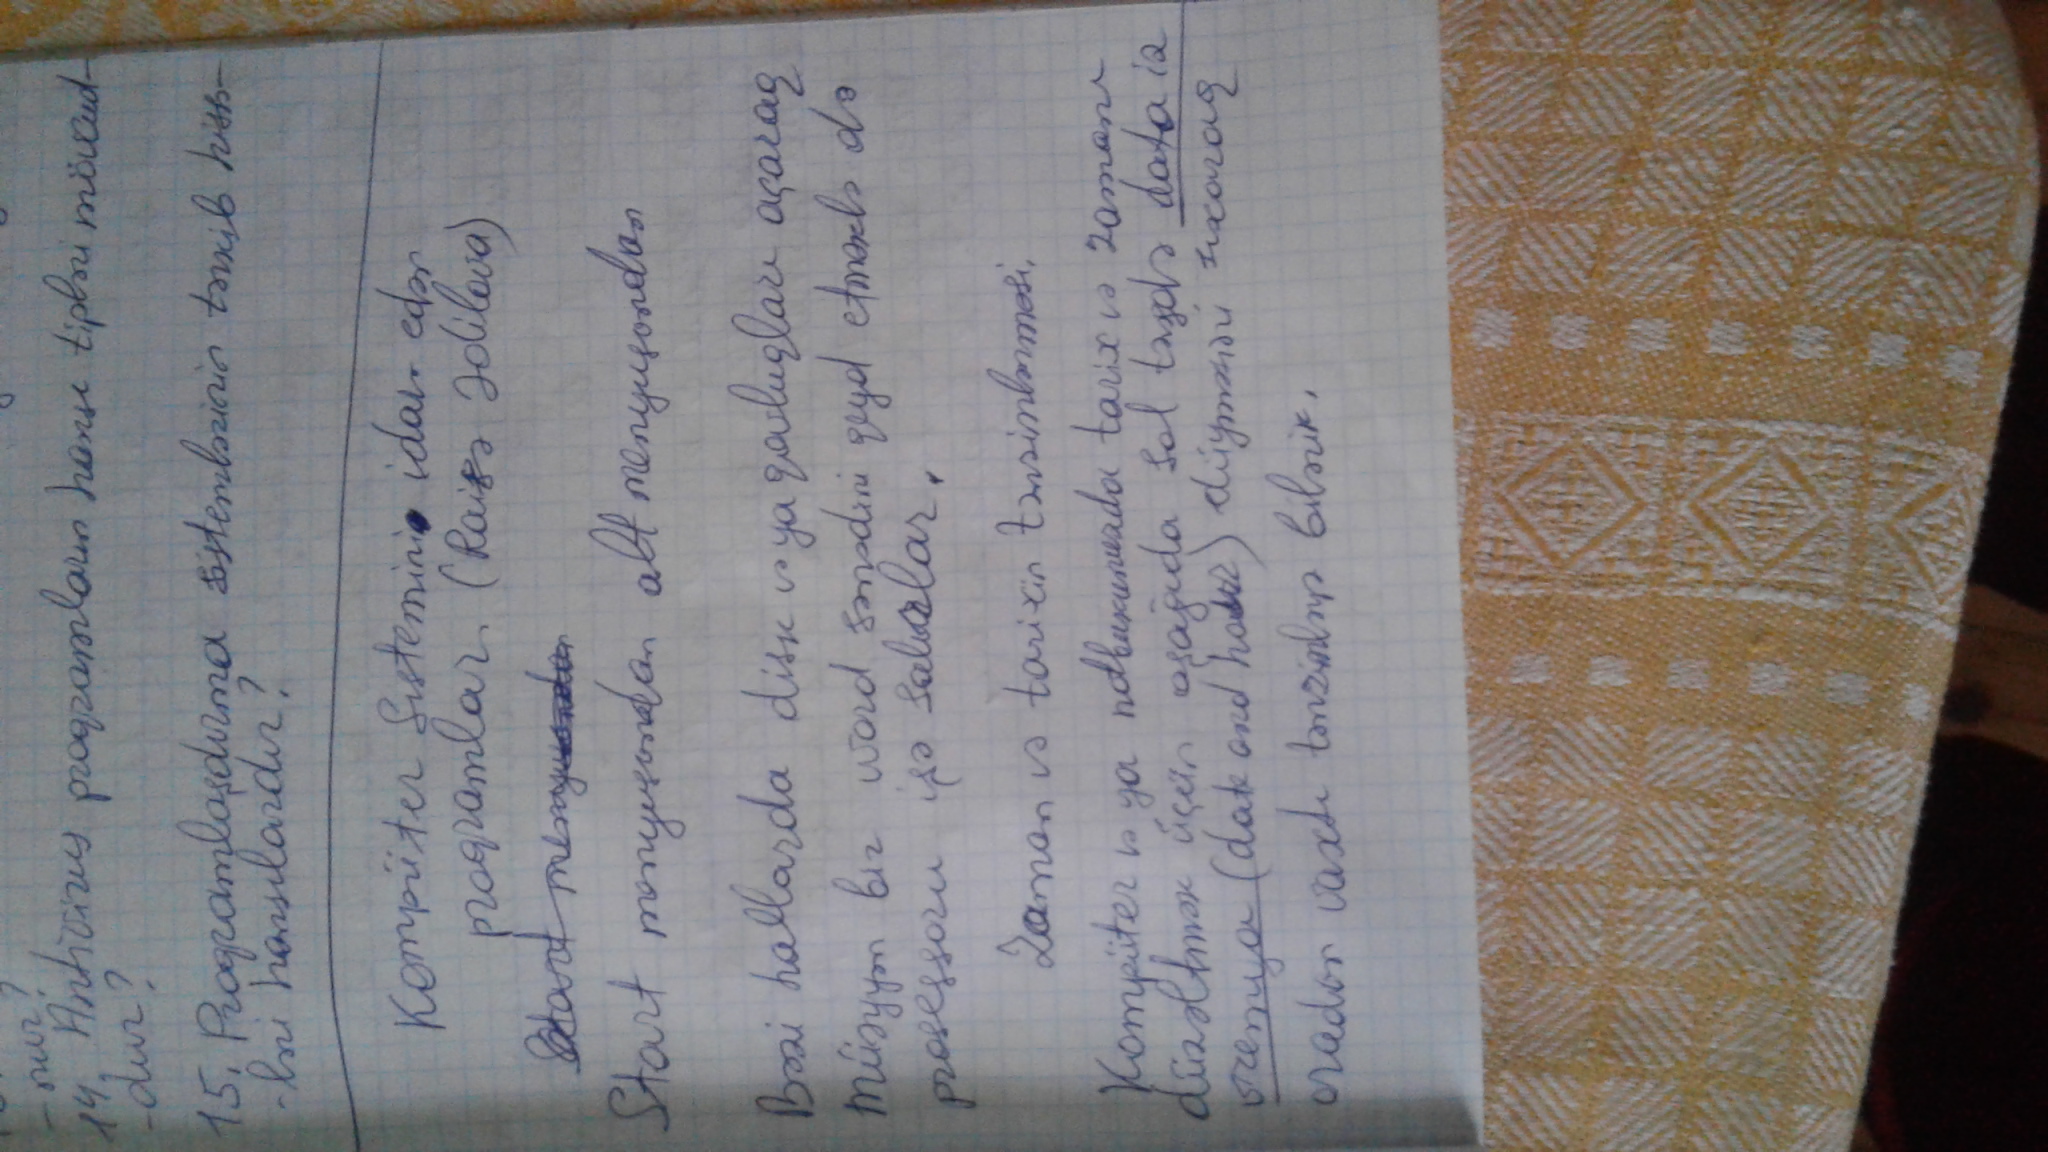 -nur?
14. Antivirus proqramların hansı tipləri mövcud-
-dur?
15. Proqramlaşdırma sistemlərinin tərkib hissə-
-ləri hansılardır?
Kompüter Sistemini idarə edən
proqramlar. (Raisə Ədilova)
Start menyusundan alt menyusundan
Bəzi hallarda disk və ya qovluqları açaraq
müəyyən bir word sənədini qeyd etməklə də
prosessoru işə salırlar.
Zaman və tarixin tənzimlənməsi.
Kompüter və ya notbukunuzda tarix və zamanı
düzəltmək üçün aşağıda sol tərəfdə data və
vremya (date and hour) düyməsini sıxaraq
oradan vaxtı tənzimləyə bilərik.